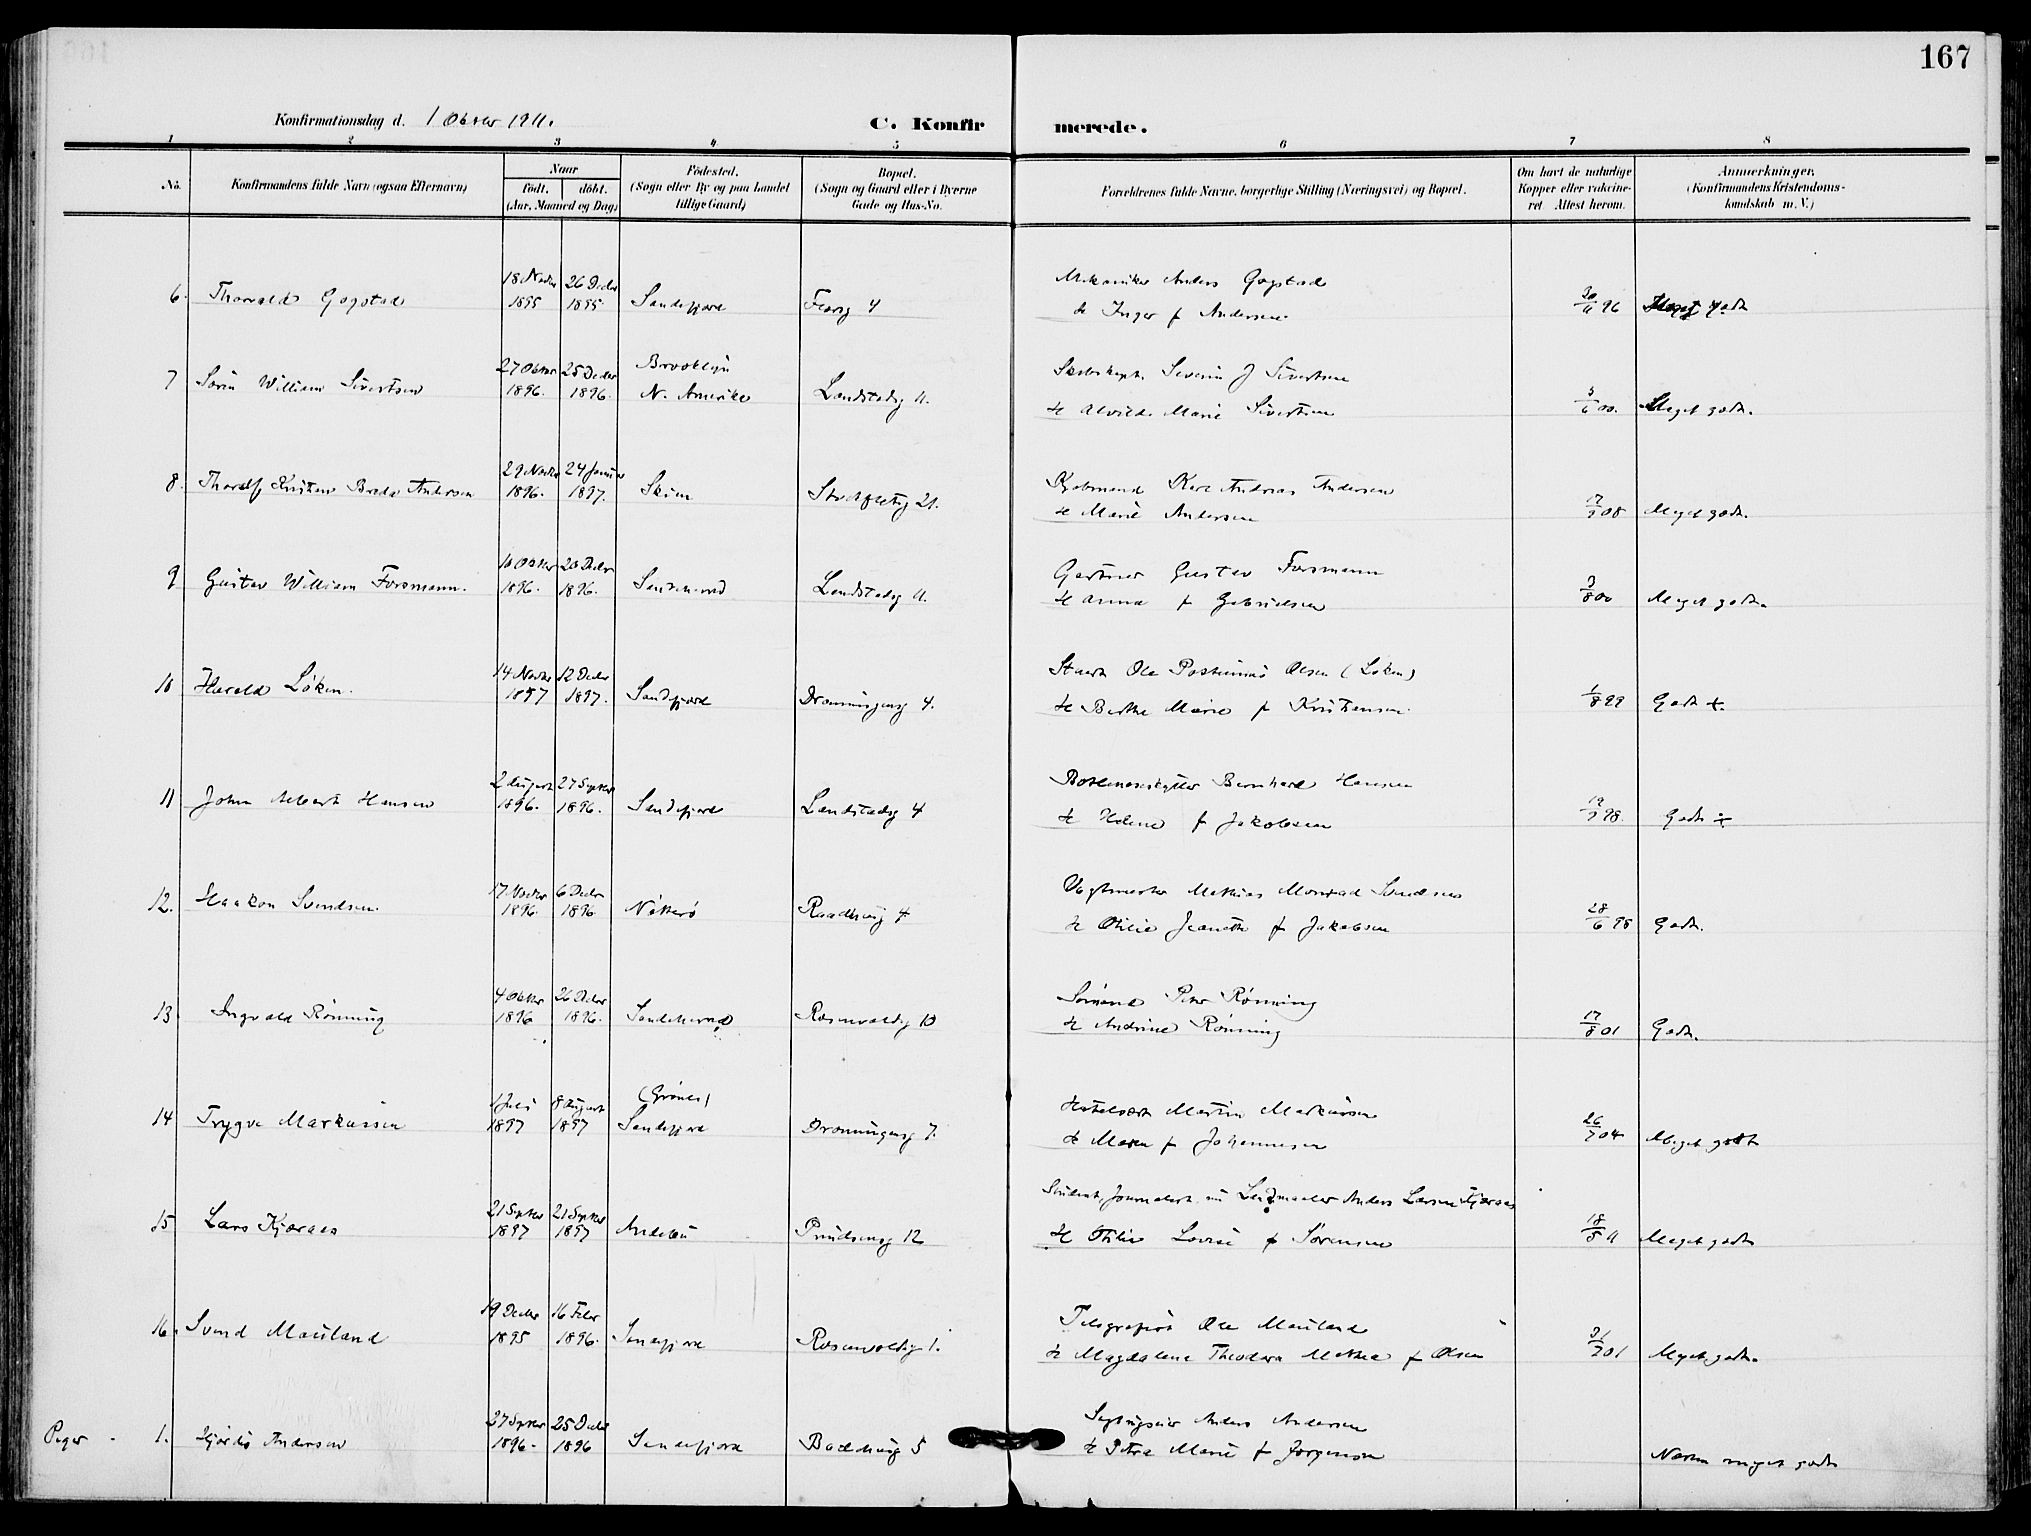 167
Konfirmationsdag d. 1 Oktober 1911.
C. Konfir merede.
1 2 3 4 5 6 7 8
No.
Konfirmandens fulde Navn (ogsaa Efternavn)
Naar
født. døbt.
(Aar, Maaned og Dag)
Fødested.
(Sogn eller By og paa Landet
tillige Gaard)
Bopæl.
(Sogn og Gaard eller i Byerne
Gade og Hus-No.
Forældrenes fulde Navne, borgerlige Stilling (Næringsvei) og Bopæl.
Om havt de naturlige
Kopper eller vakcine-
ret Attest herom.
Anmærkninger.
(Konfirmandens Kristendoms-
kundskab m. V.)
6. Thorvald Gogstad
18 Novbr 1895
26 Decbr 1895
Sandefjord
4
Mekaniker Anders Gogstad
& Inger f Andersen
Meget godt
7 Sörin William Sivertsen
27 Oktbr 1896.
25 Decbr 1896.
Brooklyn
N. Amerika
Landstadsg 11.
Skibskapt. Severin J Sivertsen
& Alvilde Marie Sivertsen
5/6 00.
Meget godt.
8. Thoralf Kristian Andersen
29 Novbr 1896.
24 Januar 1897.
Skien
21.
Kjøbmand Karl Andreas Andersen
& Marie Andersen
17/9 08
Meget godt.
9 Gustav William Forsmann.
10 Oktbr 1896.
20 Decbr 1896.
Sandeherred
Landstadsg 11.
Gartner Gustav Forsmann
& Anna f Gabrielsen
3/8 00
Meget godt.
10 Harald Løken.
14 Novbr 1897
12 Decbr 1897.
Sandefjord
Dronningensg 4.
Stuert Ole Olsen (Løken)
& Berthe Marie f Kristiansen.
1/8 99
Godt +.
11 John Albert Hansen
2 August 1896.
27 Septbr 1896.
Sandefjord
Landstadsg 4
Bottlenoseskytter Bernhard Hansen
& Helene f Jakobsen
19/9 98.
Godt +
12. Haakon Svendsen.
17 Novbr 1896.
6 Decbr 1896
Nøtterø
Raadhusg 4
Mathias Monrad Svendsen
& Otilie Jeanette f Jakobsen
28/6 98
Godt.
13 Ingvald Rønning
4 Oktbr 1896
26 Decbr 1896.
Sandeherred
Rosenvoldsg 10
Sømand Peter Rønning
& Andrine Rønning
17/8 01
Godt.
14 Trygve Markussen
1 Juli 1897
8 August 1897
Sandefjord
Dronningensg 7.
Hotelvært Martin Markussen
& Maren f Johannesen
26/7 04
Meget godt
15 Lars Kjæraas
21 Septbr 1897
21 Septbr 1897
Andebu
Prindsensg 12
Student, Journalist, nu Anders Larsen Kjæraas
& Otilie Lovise f Sørensen
18/5 11
Meget godt
16. Svend Mauland
19 Decbr 1895
16 Febr 1896.
Sandefjord
Rosenvoldsg 1.
Telegrafist Ole Mauland
& Magdalene Theodora Mathea f Olsen
31/7 01
Meget godt.
Piger - 1. Hjørdis Andersen
27 Septbr 1896.
25 Decbr 1896
Sandefjord
5
Anders Andersen
& Petra Marie f Jørgensen
Næsten meget godt